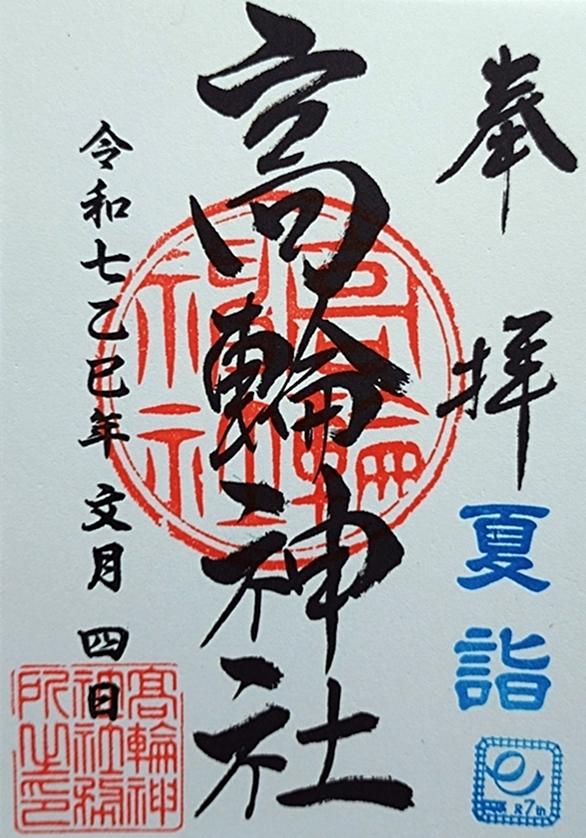 奉拝
夏詣
R7th
高輪神社
高輪神社
令和七乙巳年 文月 四日
高輪神
神社務
所之印